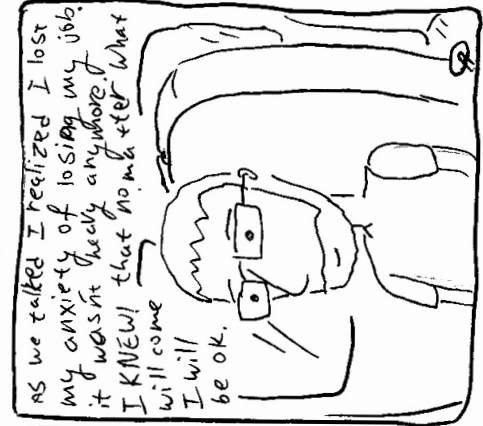 As we talked I realized I lost
my anxiety of losing my job.
it wasn't heavy anymore.
I KNEW! that no matter what
will come
I will
be ok.